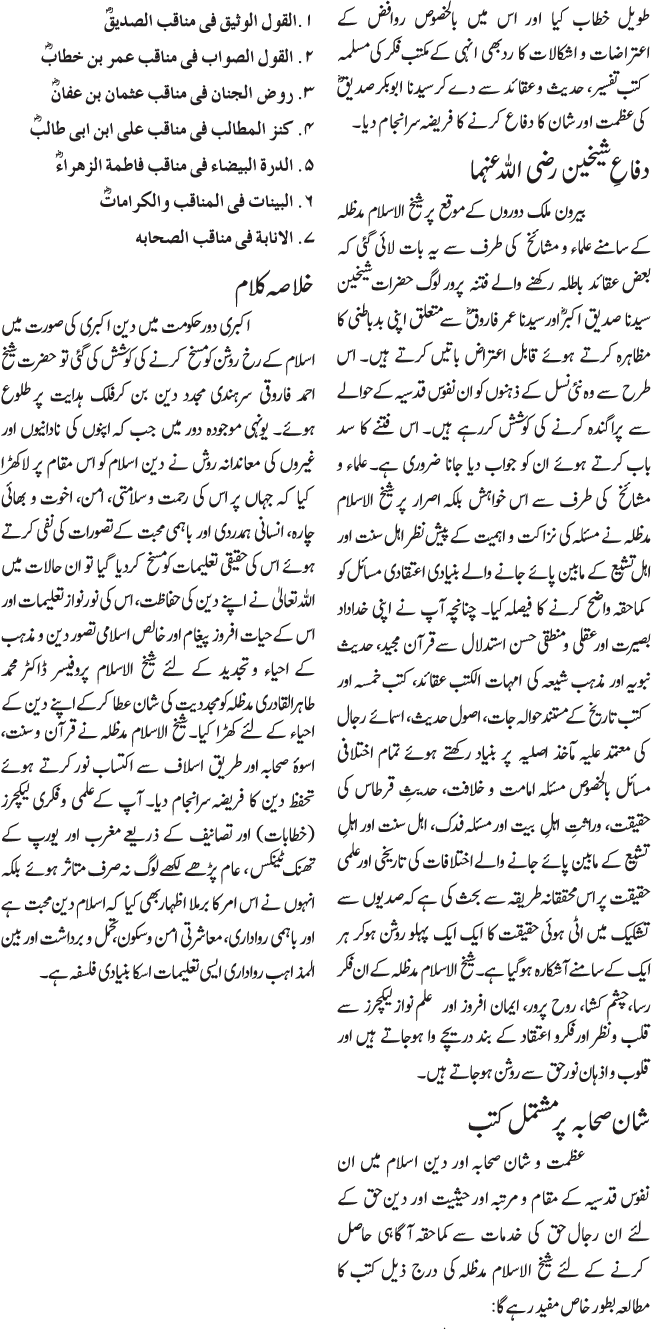 طویل خطاب کیا اور اس میں بالخصوص روافض کے
اعتراضات و اشکالات کا رد بھی انہی کے مکتب فکر کی مسلمہ
کتب تفسیر، حدیث و عقائد سے دے کر سیدنا ابوبکر صدیقؓ
کی عظمت اور شان کا دفاع کرنے کا فریضہ سرانجام دیا۔
دفاعِ شیخین رضی اللہ عنہما
بیرون ملک دوروں کے موقع پر شیخ الاسلام مدظلہ
کے سامنے علماء و مشائخ کی طرف سے یہ بات لائی گئی کہ
بعض عقائد باطلہ رکھنے والے فتنہ پرور لوگ حضرات شیخین
سیدنا صدیق اکبرؓ اور سیدنا عمر فاروقؓ سے متعلق اپنی بدباطنی کا
مظاہرہ کرتے ہوئے قابل اعتراض باتیں کرتے ہیں۔ اس
طرح سے وہ نئی نسل کے ذہنوں کو ان نفوس قدسیہ کے حوالے
سے پراگندہ کرنے کی کوشش کررہے ہیں۔ اس فتنے کا سد
باب کرتے ہوئے ان کو جواب دیا جانا ضروری ہے۔ علماء و
مشائخ کی طرف سے اس خواہش بلکہ اصرار پر شیخ الاسلام
مدظلہ نے مسئلہ کی نزاکت و اہمیت کے پیش نظر اہل سنت اور
اہل تشیع کے مابین پائے جانے والے بنیادی اعتقادی مسائل کو
کماحقہ واضح کرنے کا فیصلہ کیا۔ چنانچہ آپ نے اپنی خداداد
بصیرت اور عقلی و منطقی حسن استدلال سے قرآن مجید، حدیث
نبویہ اور مذہب شیعہ کی امہات الکتب عقائد، کتب خمسہ اور
کتب تاریخ کے مستند حوالہ جات، اصول حدیث، اسمائے رجال
کی معتمد علیہ مآخذ اصلیہ پر بنیاد رکھتے ہوئے تمام اختلافی
مسائل بالخصوص مسئلہ امامت و خلافت، حدیثِ قرطاس کی
حقیقت، وراثتِ اہلِ بیت اور مسئلہ فدک، اہل سنت اور اہلِ
تشیع کے مابین پائے جانے والے اختلافات کی تاریخی اور علمی
حقیقت پر اس محققانہ طریقہ سے بحث کی ہے کہ صدیوں سے
تشکیک میں اٹی ہوئی حقیقت کا ایک ایک پہلو روشن ہوکر ہر
ایک کے سامنے آشکارہ ہوگیا ہے۔ شیخ الاسلام مدظلہ کے ان فکر
رسا، چشم کشا، روح پرور، ایمان افروز اور علم نواز لیکچرز سے
قلب و نظر اور فکرو اعتقاد کے بند دریچے وا ہوجاتے ہیں اور
قلوب و اذہان نور حق سے روشن ہوجاتے ہیں۔
شان صحابہ پر مشتمل کتب
عظمت و شان صحابہ اور دین اسلام میں ان
نفوس قدسیہ کے مقام و مرتبہ اور حیثیت اور دین حق کے
لئے ان رجال حق کی خدمات سے کماحقہ آگاہی حاصل
کرنے کے لئے شیخ الاسلام مدظلہ کی درج ذیل کتب کا
مطالعہ بطور خاص مفید رہے گا:
۱. القول الوثیق فی مناقب الصدیقؓ
۲. القول الصواب فی مناقب عمر بن خطابؓ
۳. روض الجنان فی مناقب عثمان بن عفانؓ
۴. کنز المطالب فی مناقب علی ابن ابی طالبؓ
۵. الدرة البیضاء فی مناقب فاطمة الزهراءؓ
۶. البینات فی المناقب والکراماتؓ
۷. الانابة فی مناقب الصحابه
خلاصہ کلام
اکبری دور حکومت میں دین اکبری کی صورت میں
اسلام کے رخ روشن کو مسخ کرنے کی کوشش کی گئی تو حضرت شیخ
احمد فاروقی سرہندی مجدد دین بن کر فلک ہدایت پر طلوع
ہوئے۔ یونہی موجودہ دور میں جب کہ اپنوں کی نادانیوں اور
غیروں کی معاندانہ روش نے دین اسلام کو اس مقام پر لاکھڑا
کیا کہ جہاں پر اس کی رحمت و سلامتی، امن، اخوت و بھائی
چارہ، انسانی ہمدردی اور باہمی محبت کے تصورات کی نفی کرتے
ہوئے اس کی حقیقی تعلیمات کو مسخ کردیا گیا تو ان حالات میں
اللہ تعالیٰ نے اپنے دین کی حفاظت، اس کی نور نواز تعلیمات اور
اس کے حیات افروز پیغام اور خالص اسلامی تصور دین و مذہب
کے احیاء و تجدید کے لئے شیخ الاسلام پروفیسر ڈاکٹر محمد
طاہرالقادری مدظلہ کو مجددیت کی شان عطا کرکے اپنے دین کے
احیاء کے لئے کھڑا کیا۔ شیخ الاسلام مدظلہ نے قرآن و سنت،
اسوۂ صحابہ اور طریق اسلاف سے اکتساب نور کرتے ہوئے
تحفظ دین کا فریضہ سرانجام دیا۔ آپ کے علمی و فکری لیکچرز
(خطابات) اور تصانیف کے ذریعے مغرب اور یورپ کے
تھنک ٹینکس، عام پڑھے لکھے لوگ نہ صرف متاثر ہوئے بلکہ
انہوں نے اس امر کا برملا اظہار بھی کیا کہ اسلام دین محبت ہے
اور باہمی رواداری، معاشرتی امن و سکون، تحمل و برداشت اور بین
المذاہب رواداری ایسی تعلیمات اسکا بنیادی فلسفہ ہے۔